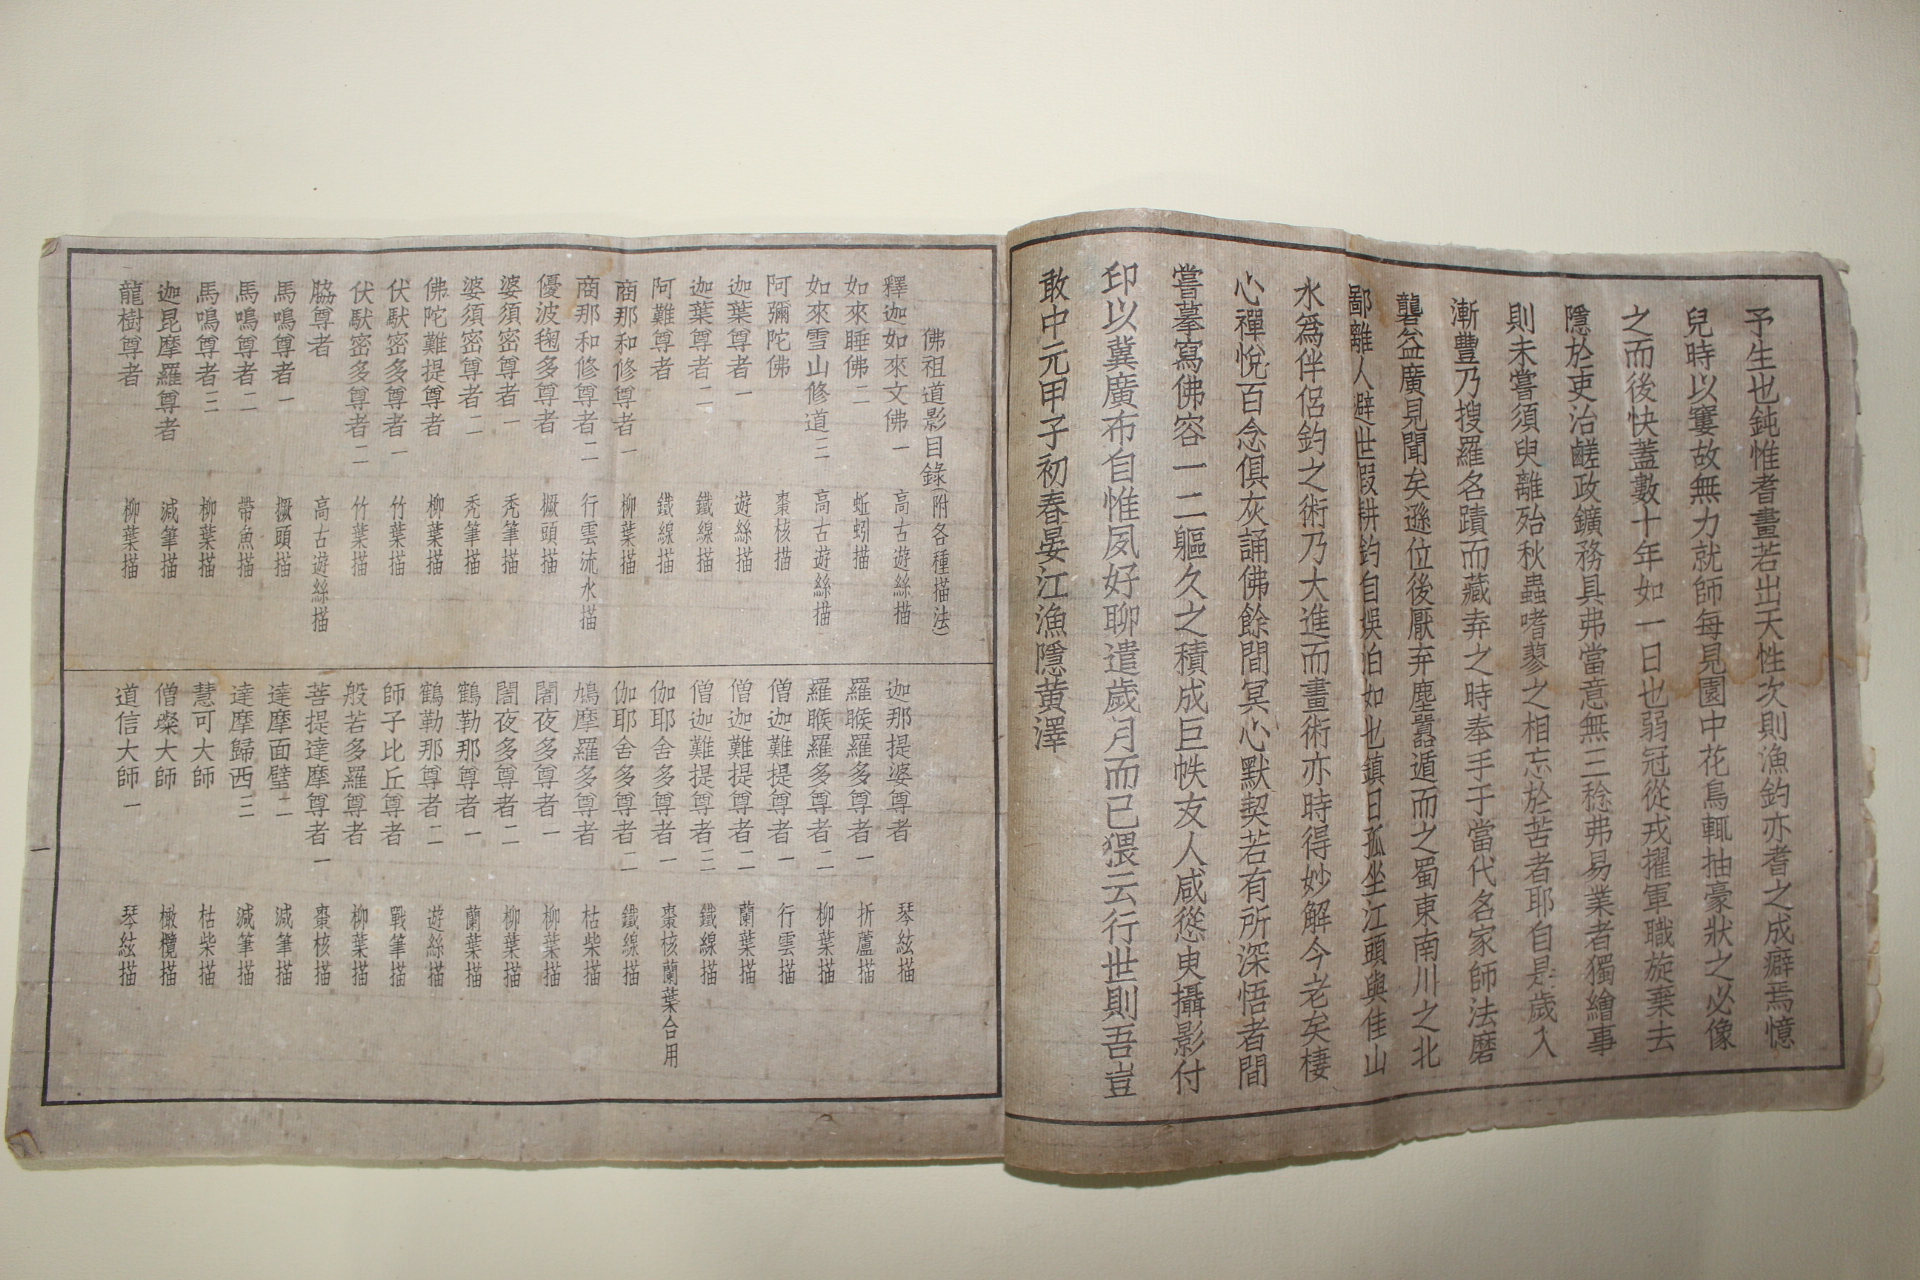 予生也鈍惟耆畫若出天性次則漁釣亦耆之成癖焉憶
兒時以窶故無力就師每見園中花鳥輒抽豪狀之必像
之而後快蓋數十年如一日也弱冠從戎擢軍職旋棄去
隱於吏治鹺政鑛務具弗當意無三稔弗易業者獨繪事
則未嘗須臾離殆秋蟲嗜蓼之相忘於苦者耶自是歲入
漸豐乃搜羅名蹟而藏弆之時奉手于當代名家師法磨
礱益廣見聞矣遜位後厭弃塵囂遁而之蜀東南川之北
鄙離人避世假耕釣自娛泊如也鎮日孤坐江頭與佳山
水為伴侶釣之術乃大進而畫術亦時得妙解今老矣棲
心禪悅百念俱灰誦佛餘閒冥心默契若有所深悟者間
嘗摹寫佛容一二軀久之積成巨帙友人咸慫臾攝影付
印以冀廣布自惟夙好聊遣歲月而已猥云行世則吾豈
敢中元甲子初春晏江漁隱黃澤
佛祖道影目錄(附各種描法)
釋迦如來文佛一 高古遊絲描
如來睡佛二 蚯蚓描
如來雪山修道三 高古遊絲描
阿彌陀佛 棗核描
迦葉尊者一 遊絲描
迦葉尊者二 鐵線描
阿難尊者 鐵線描
商那和修尊者一 柳葉描
商那和修尊者二 行雲流水描
優波毱多尊者 橛頭描
婆須密尊者一 禿筆描
婆須密尊者二 禿筆描
佛陀難提尊者 柳葉描
伏馱密多尊者一 竹葉描
伏馱密多尊者二 竹葉描
脇尊者 高古遊絲描
馬鳴尊者一 橛頭描
馬鳴尊者二 帶魚描
馬鳴尊者三 柳葉描
迦毘摩羅尊者 減筆描
龍樹尊者 柳葉描
迦那提婆尊者 琴絃描
羅睺羅多尊者一 折蘆描
羅睺羅多尊者二 柳葉描
僧伽難提尊者一 行雲描
僧伽難提尊者二 蘭葉描
僧迦難提尊者三 鐵線描
伽耶舍多尊者一 棗核蘭葉合用
伽耶舍多尊者二 鐵線描
鳩摩羅多尊者 枯柴描
闍夜多尊者一 柳葉描
闍夜多尊者二 柳葉描
鶴勒那尊者一 蘭葉描
鶴勒那尊者二 遊絲描
師子比丘尊者 戰筆描
般若多羅尊者 柳葉描
菩提達摩尊者一 棗核描
達摩面壁二 減筆描
達摩歸西三 減筆描
慧可大師 枯柴描
僧璨大師 橄欖描
道信大師一 琴絃描
一